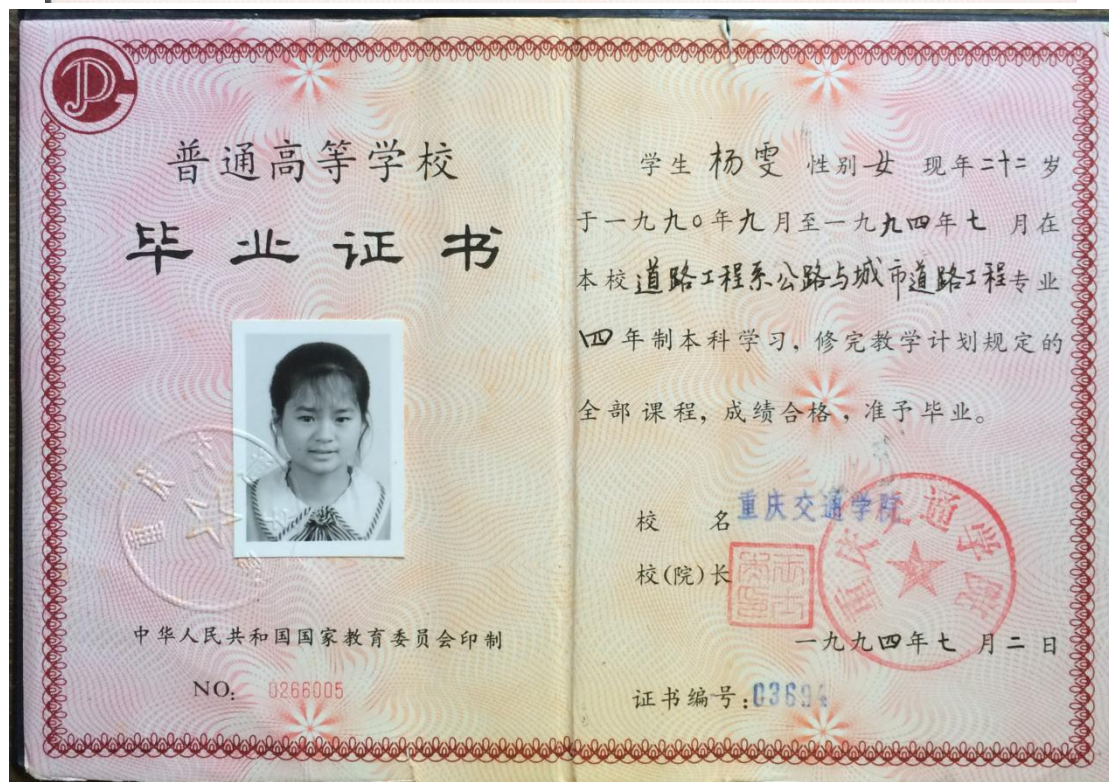 普通高等学校
毕业证书
中华人民共和国国家教育委员会印制
NO: 0266005
学生 杨雯 性别 女 现年二十二岁
于一九九〇年九月至一九九四年七月在
本校道路工程系公路与城市道路工程专业
四年制本科学习，修完教学计划规定的
全部课程，成绩合格，准予毕业。
校 名 重庆交通学院
校(院)长
重庆交通学院
一九九四年七月二日
证书编号:03694